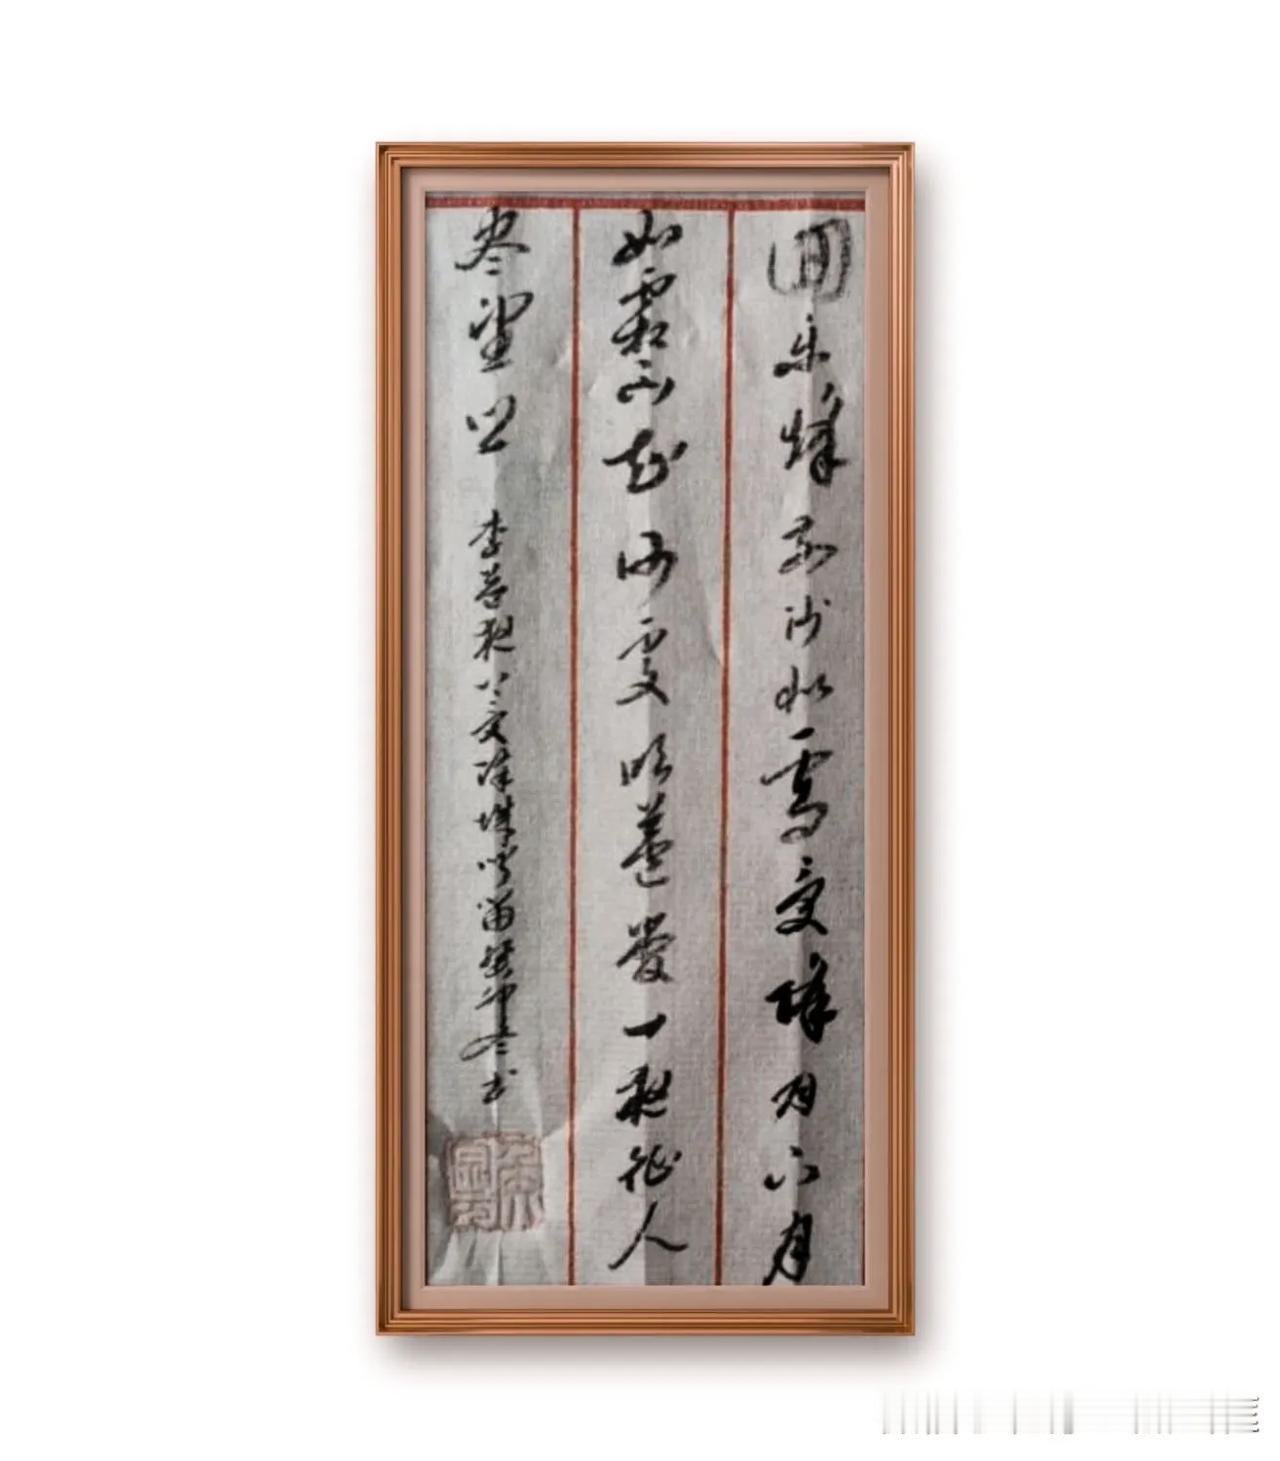 回乐烽前沙似雪受降月
如霜不知何处吹芦管一夜征人
尽望乡 李益夜上受降城闻笛癸卯冬书